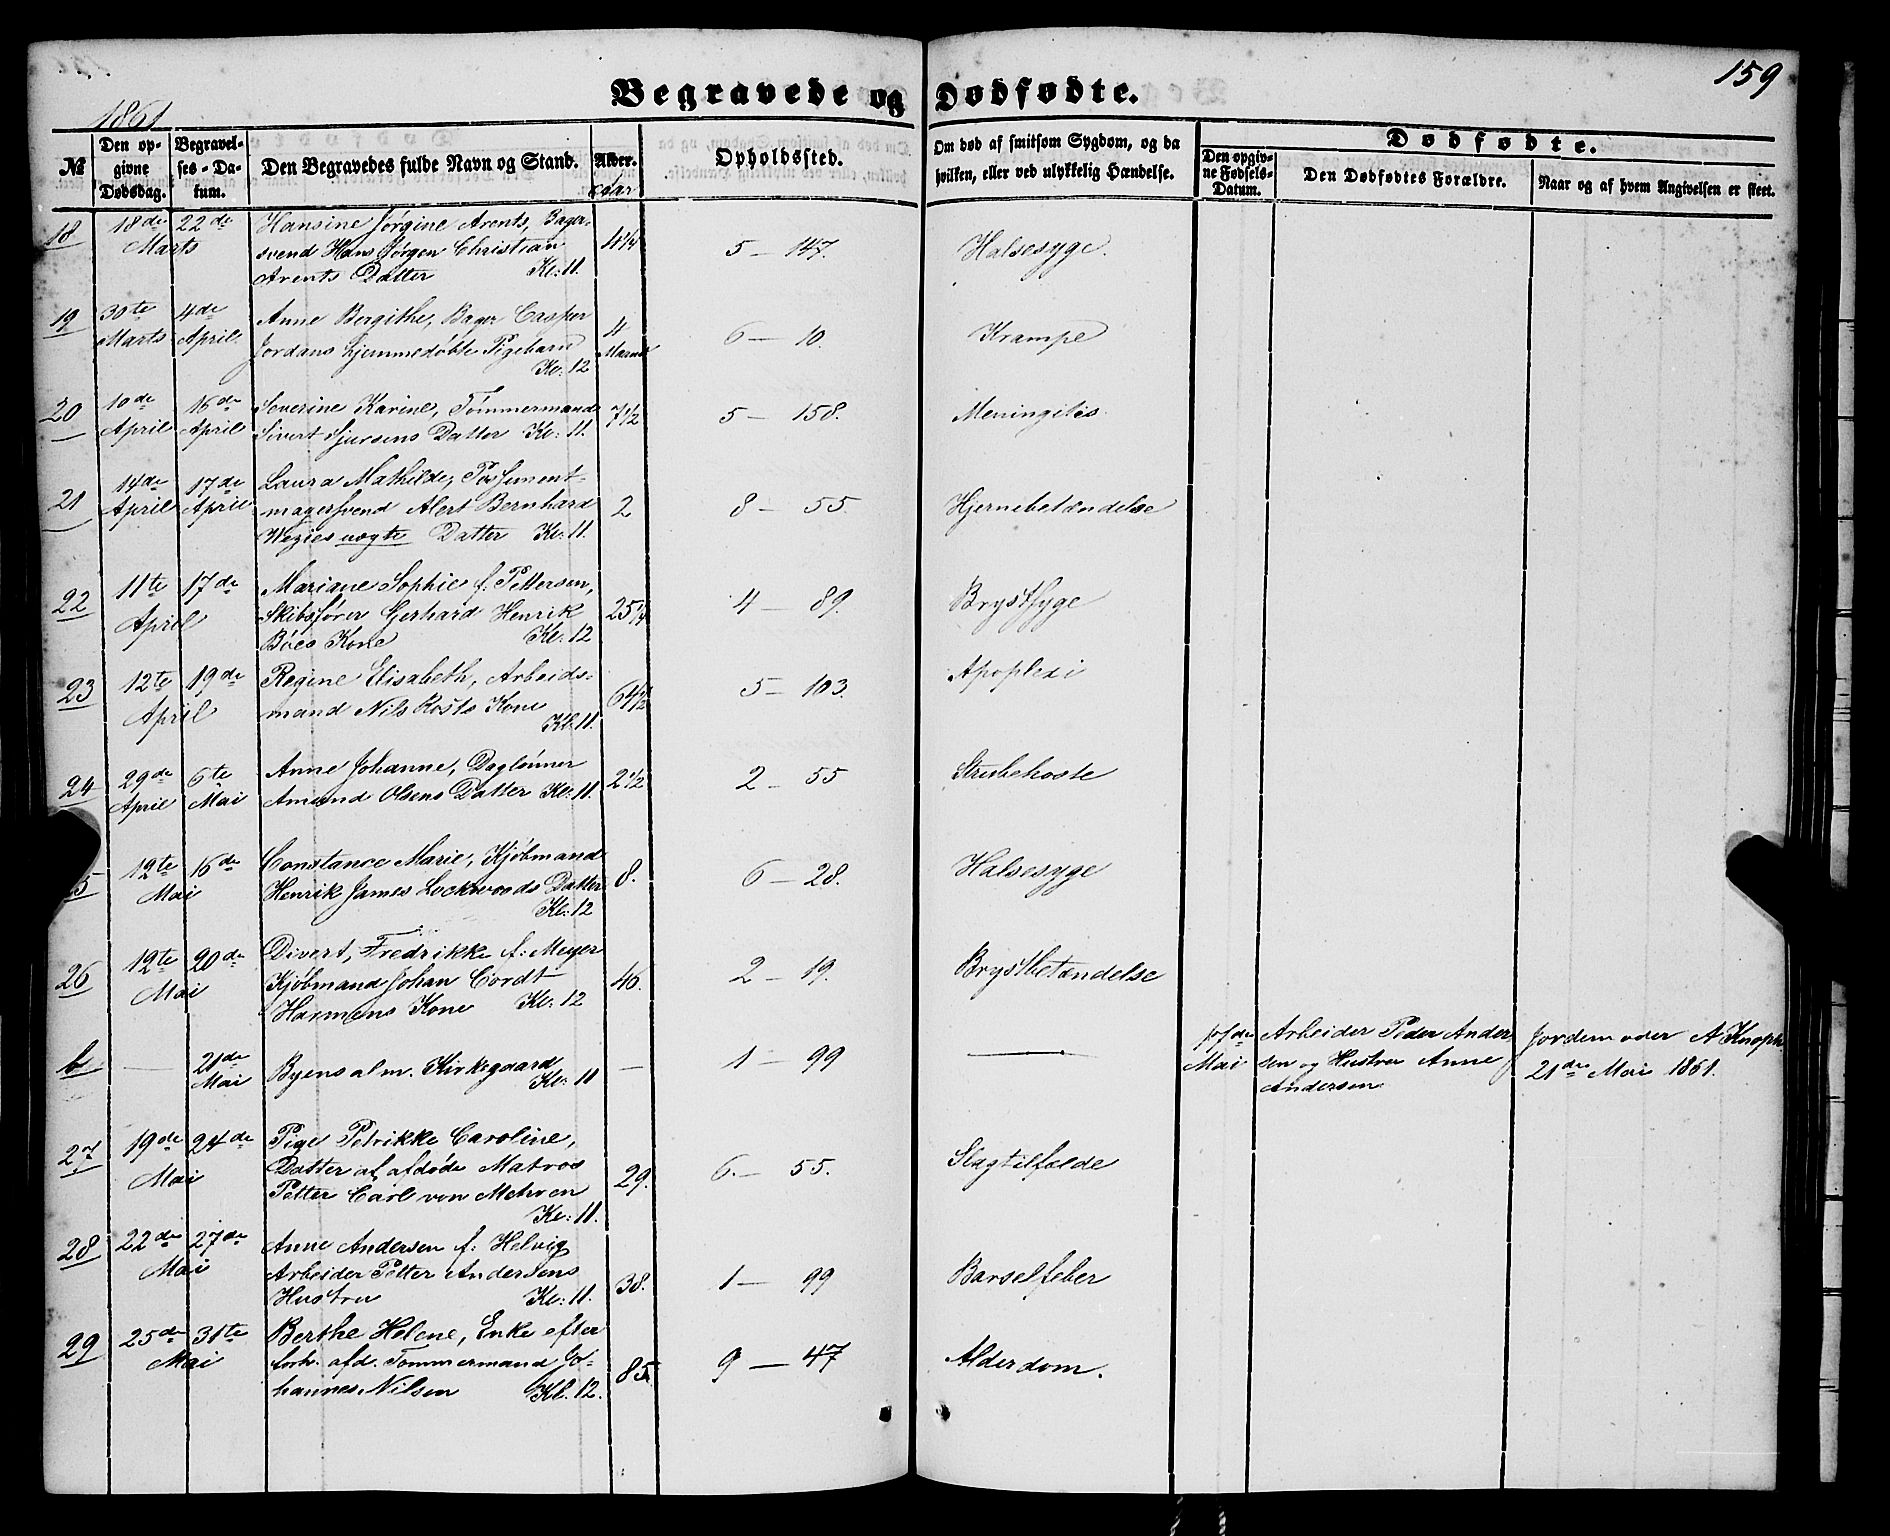 159
1861
Begravede og Dødfødte.
№
Den op-
givne
Dødsdag.
Begravel-
ses-Da-
tum.
Den Begravedes fulde Navn og Stand.
Alder.
Aar
Opholdssted.
Om død af smitsom Sygdom, og da
hvilken, eller ved ulykkelig Hændelse.
Dødfødte.
Den opgiv-
ne Fødsels-
Datum.
Den Dødfødtes Forældre.
Naar og af hvem Angivelsen er skeet.
18 18de 22de Hansine Jørgine Arents, Bager-
Marts svend Hans Jørgen Christian 4 1/4 5 — 147. Halsesyge.
Arents Datter Kl: 11.
19 30te 4de Anne Bergithe, Bager Casper
Marts April Jordans hjemmedøbte Pigebarn 4 6 — 10. Krampe
Kl: 12
20 10de 16de Severine Karine, Tømmermand 7 1/2 5 — 158. Meningitis
April April Sivert Sjursens Datter Kl: 11.
21 14de 17de Laura Mathilde, Possement-
April April magersvend Alert Bernhard 2 8 — 55. Hjernebetændelse
uægte Datter Kl: 11.
22 11te 17de Mariane Sophie f: Pettersen,
April Skibsfører Gerhard Henrik 25 1/4 4 — 89. Brystsyge
Bøes Kone Kl: 12
23 12te 19de Regine Elisabeth, Arbeids- 64 1/2 5 — 103. Apoplexi
April mand Nils Rosts Kone
Kl: 11.
24 29de 6te Anne Johanne, Daglønner 2 1/2 2 — 55 Strubehoste
April Mai Amund Olsens Datter Kl: 11.
5 12te 16de Constance Marie, Kjøbmand
Mai Henrik James Lockwoods Datter 8. 6 — 28. Halsesyge
Kl: 12
26 12te 20de Divert, Fredrikke f: Meyer
Mai Kjøbmand Johan Cordt 46. 2 — 19. Brystbetændelse
Harmens Kone Kl: 12
b — 21de Byens alm. Kirkegaard — 1 — 99 —
Mai Kl: 11
Mai Arbeider Peder Ander-
sen og Hustru Anne
Andersen
Jordemoder A Knoph
21de Mai 1861.
27 19de 24de Pige Petrikke Caroline,
Mai Datter af afdøde Matros 29. 6. — 55. Slagtilfælde
Petter Carl von Mehren
Kl: 11.
28 22de 27de Anne Andersen f: Helvig
Mai Arbeider Petter Andersens 38. 1 — 99 Barselfeber
Hustru Kl: 11.
29 25de 31te Berthe Helene, Enke efter
Mai forh. afd. Tømmermand Jo- 85. 9 — 47 Alderdom.
hannes Nilsen Kl. 12.